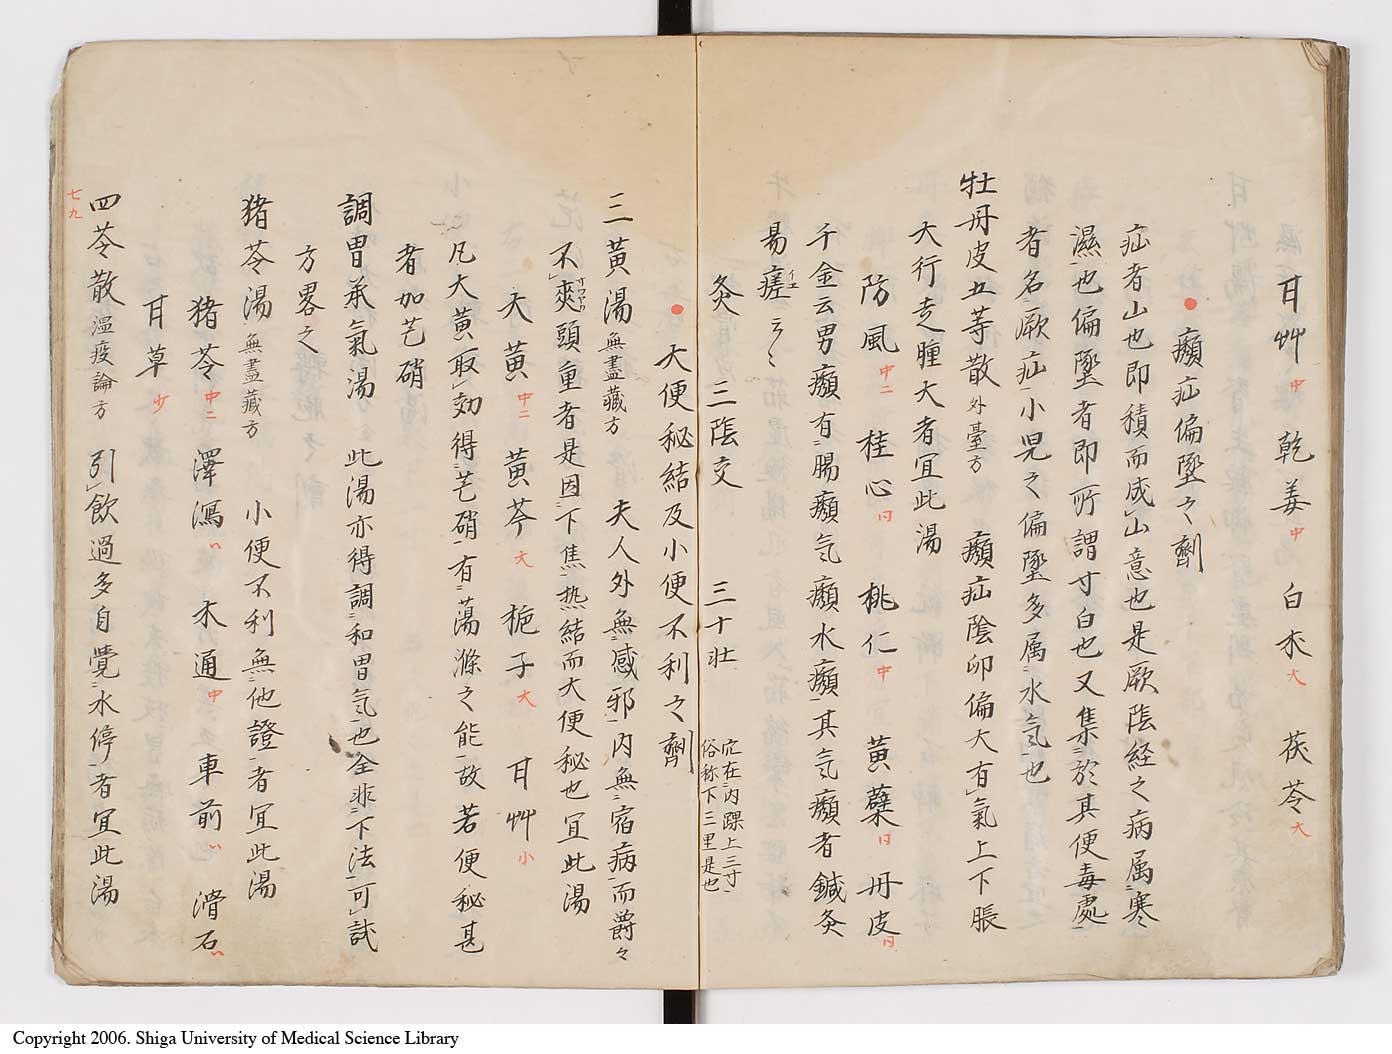 甘艸 中 乾姜 中 白朮 大 茯苓 大
●癩疝偏墜之劑
疝者山也即積而成山意也是厥陰経之病属寒
濕也偏墜者即所謂寸白也又集於其便毒處
者名厥疝小児之偏墜多属水気也
牡丹皮五等散 外臺方 癩疝陰卯偏大有氣上下脹
大行走腫大者宜此湯
防風 中二 桂心 同 桃仁 中 黄蘗 同 丹皮 同
千金云男癩有腸癩気癩水癩其気癩者鍼灸
易瘥イユ云々
灸 三陰交 三十壮 穴在内踝上三寸
俗称下三里是也
●大便秘結及小便不利之劑
三黄湯 無盡藏方 夫人外無感邪内無宿病而爵々
不爽頭重者是因下焦热結而大便秘也宜此湯
大黄 中二 黄芩 大 梔子 大 甘艸 小
凡大黄取効得芒硝有蕩滌之能故若便秘甚
者加芒硝
調胃承氣湯 此湯亦得調和胃気也全非下法可試
方畧之
猪苓湯 無盡藏方 小便不利無他證者宜此湯
猪苓 中二 澤瀉 〃 木通 中 車前 〃 滑石 〃
甘草 少
四苓散 温疫論方 引飲過多自覺水停者宜此湯
七九
Copyright 2006. Shiga University of Medical Science Library